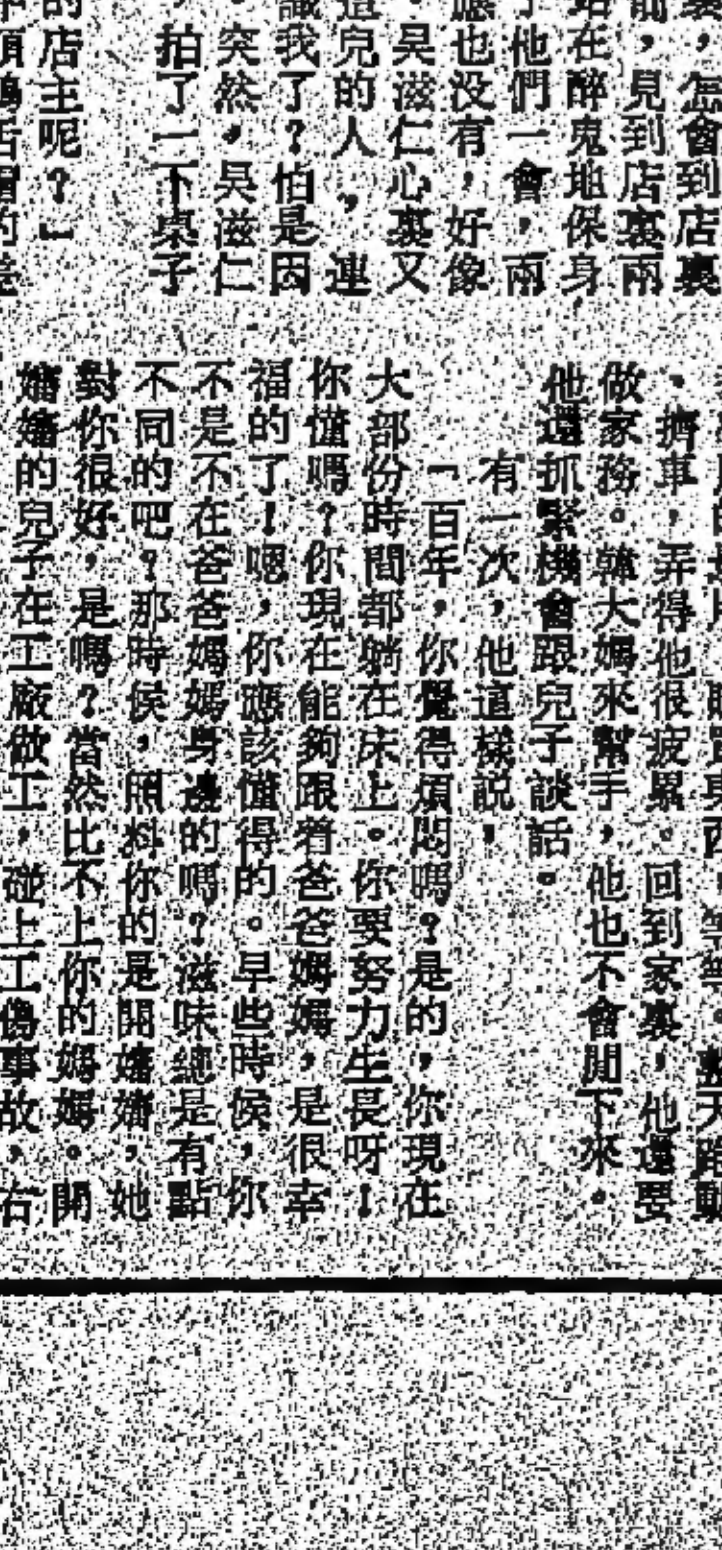 裏，怎會到店裏
前，見到店裏兩
站在醉鬼地保身
了他們一會，兩
應也没有，好像
。吴滋仁心裏又
這兒的人，連
識我了？怕是因
。突然，吴滋仁
拍了一下桌子
的店主呢？」
、擠車，弄得他很疲累。回到家裏，他還要
做家務。韓大媽來幫手，他也不會閒下來。
他還抓緊機會跟兒子談話。
有一次，他這樣説，
「百年，你覺得煩悶嗎？是的，你現在
大部份時間都躺在床上。你要努力生長呀！
你懂嗎？你現在能夠跟着爸爸媽媽，是很幸
福的了！嗯，你應該懂得的。早些時候，你
不是不在爸爸媽媽身邊的嗎？滋味總是有點
不同的吧？那時候，照料你的是開嬸嬸，她
對你很好，是嗎？當然比不上你的媽媽。開
嬸嬸的兒子在工廠做工，碰上工傷事故，右